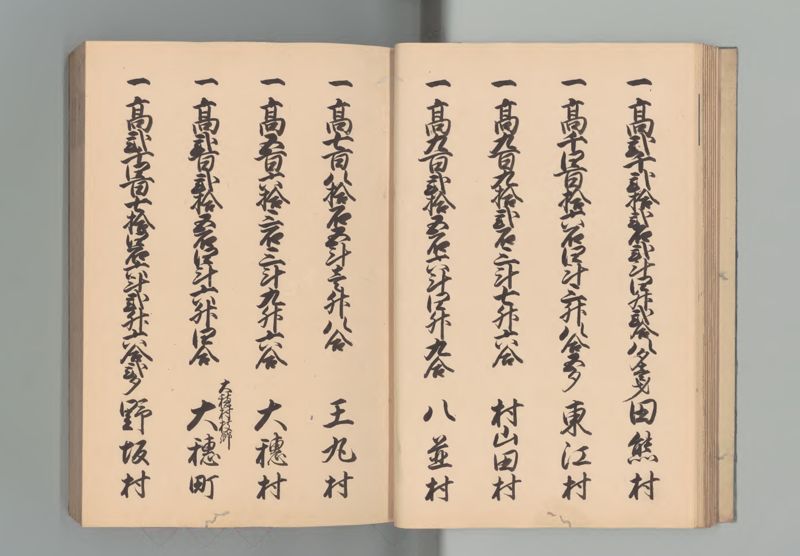 一 高弐千弐拾弐石弐斗四升弐合八夕 田熊村
一 高千四百拾六石四斗三升八合五夕 東江村
一 高九百九拾弐石三斗七升六合 村山田村
一 高九百弐拾五石六斗四升九合 八並村
一 高七百八拾石五斗壱升八合 王丸村
一 高五百六拾三石三斗九升六合 大穂村
一 高弐百弐拾五石四斗六升四合 大穂町
大穂村枝郷
一 高弐千四百七拾四石六斗弐升六合弐夕 野坂村